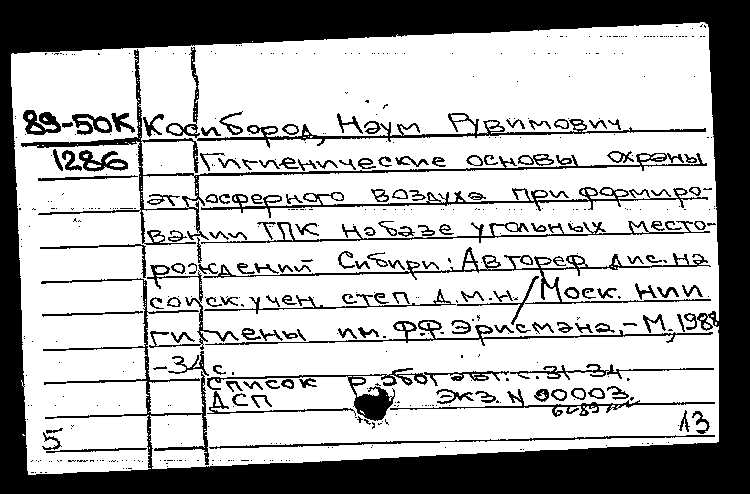 89-50К Косибород, Наум Рувимович.
1286 Гигиенические основы охраны
атмосферного воздуха при формиро-
вании ТПК на базе угольных место-
рождений Сибири: Автореф дис. на
соиск. учен. степ. д.м.н. / Моск. НИИ
гигиены им. Ф.Ф. Эрисмана, - М, 1988
-34 с.
список работ авт.: с. 31-34.
ДСП Экз. N 00003.
5 13